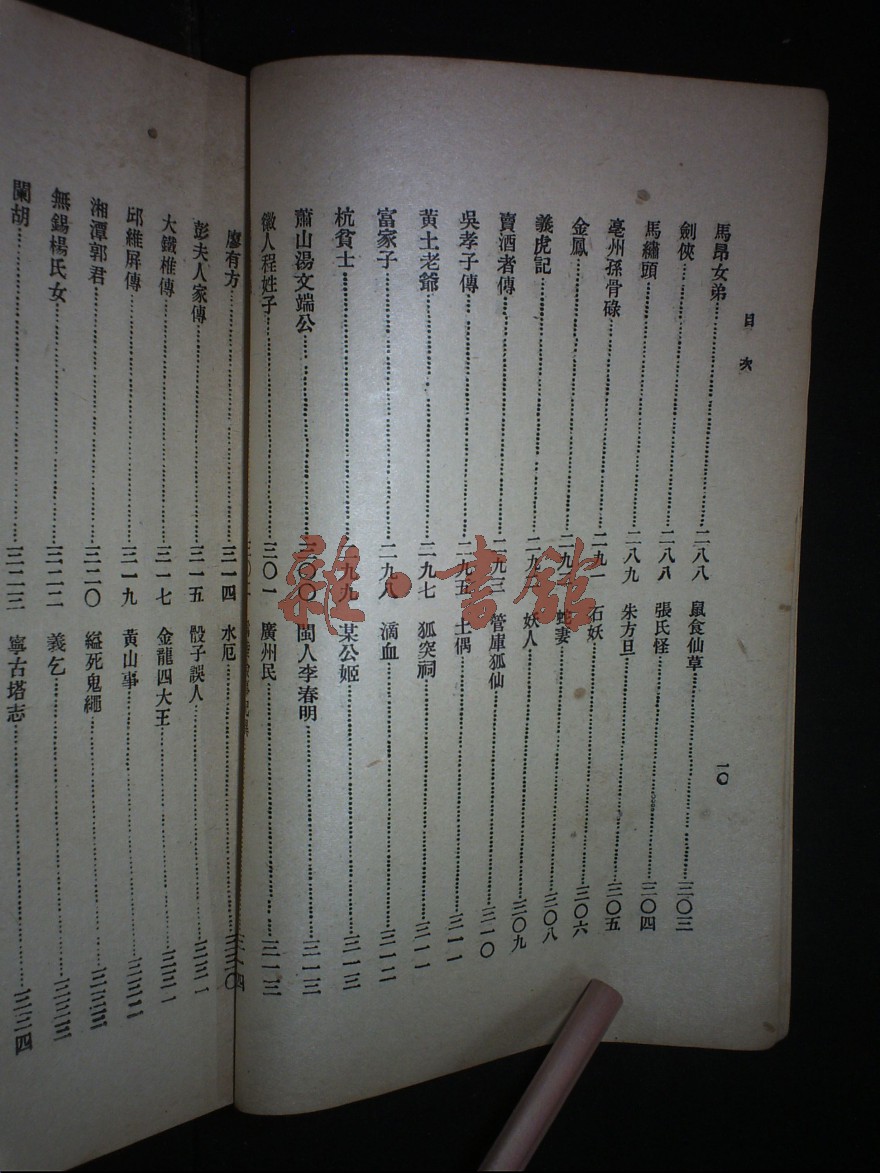 目次 一〇
馬昂女弟……二八八 鼠食仙草……三〇三
劍俠……二八八 張氏怪……三〇四
馬繡頭……二八九 朱方旦……三〇五
亳州孫骨碌……二九一 石妖……三〇六
金鳳……二九二 蛇妻……三〇八
義虎記……二九 妖人……三〇九
賣酒者傳……二九三 管庫狐仙……三一〇
吳孝子傳……二九五 土偶……三一一
黃土老爺……二九七 狐突祠……三一一
富家子……二九八 滴血……三一二
杭貧士……二九九 某公姬……三一三
蕭山湯文端公……三〇〇 閩人李春明……三一三
徽人程姓子……三〇一 廣州民……三一三
三一四
廖有方……三一四 水厄……三三〇
彭夫人家傳……三一五 骰子誤人……三三一
大鐵椎傳……三一七 金龍四大王……三三一
邱維屏傳……三一九 黃山事……三三二
湘潭郭君……三二〇 縊死鬼繩……三三三
無錫楊氏女……三二二 義乞……三三三
闌胡……三二三 寧古塔志……三三四
雜·書館